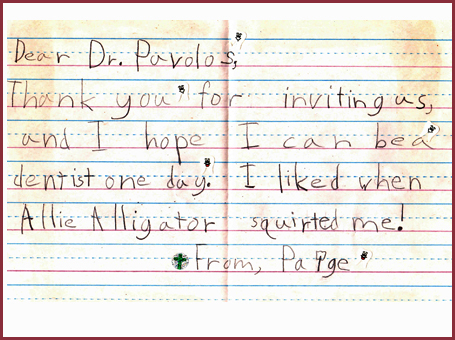 Dear Dr. Pavolos,
Thank you for inviting us,
and I hope I can be a
dentist one day. I liked when
Allie Alligator squirted me!
From, Paige